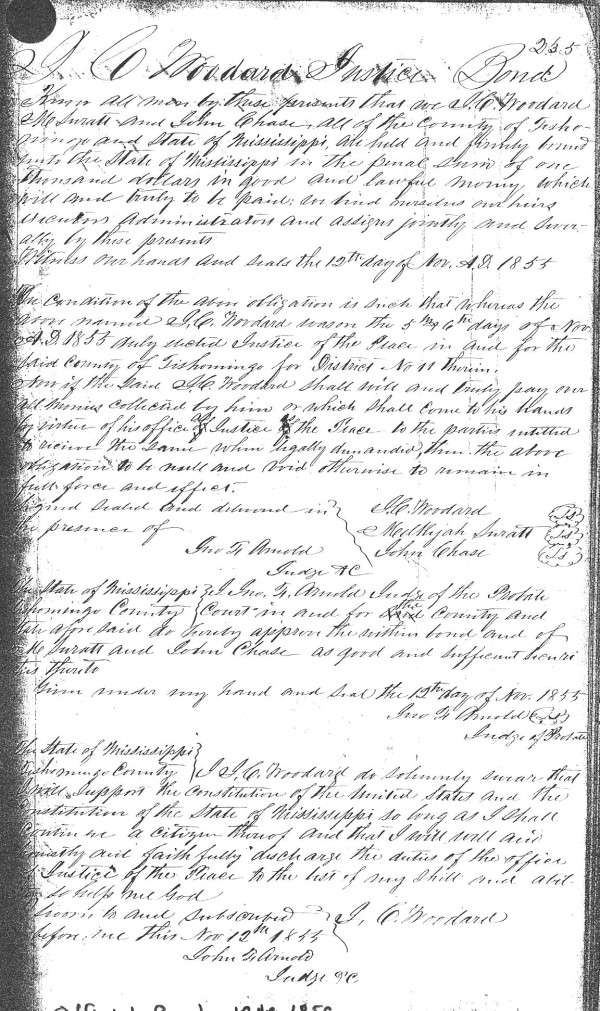 235
I. C. Woodard Justice Bond
Know all men by these presents that we I. C. Woodard
M Suratt and John Chase, all of the County of Tisho-
mingo and State of Mississippi, are held and firmly bound
unto the State of Mississippi in the penal sum of one
thousand dollars in good and lawful money which
will and truly to be paid; we bind ourselves our heirs
executors administrators and assigns jointly and sever-
ally by these presents
Witness our hands and seals the 12th day of Nov. A.D. 1855
The condition of the above obligation is such that whereas the
above named I. C. Woodard was on the 5th & 6th days of Nov.
A.D. 1855 duly elected Justice of the Peace in and for the
said County of Tishomingo for District No 11 therein.
Now if the said I. C. Woodard shall will and truly pay over
all monies collected by him or which shall come to his hands
by virtue of his office of Justice of the Peace to the parties entitled
to receive the same when legally demanded, then the above
obligation to be null and void otherwise to remain in
full force and effect.
Signed sealed and delivered in
the presence of
I. C. Woodard
Melkijah Suratt
John Chase
Jno F. Arnold
Judge &C
The State of Mississippi
Tishomingo County
I Jno. F. Arnold Judge of the Probate
Court in and for the County and
State aforesaid do hereby approve the within bond and of
M Suratt and John Chase as good and sufficient securi
ties thereto
Given under my hand and seal the 12th day of Nov. 1855
Jno F. Arnold
Judge of Probate
The State of Mississippi
Tishomingo County
I I. C. Woodard do solemnly swear that
I will support the constitution of the United States and the
constitution of the State of Mississippi so long as I shall
continue a citizen thereof and that I will will and
faithfully discharge the duties of the office
of Justice of the Peace to the best of my skill and abil-
so help me God
Sworn to and subscribed
before me this Nov 12th 1855
I. C. Woodard
John F. Arnold
Judge &C